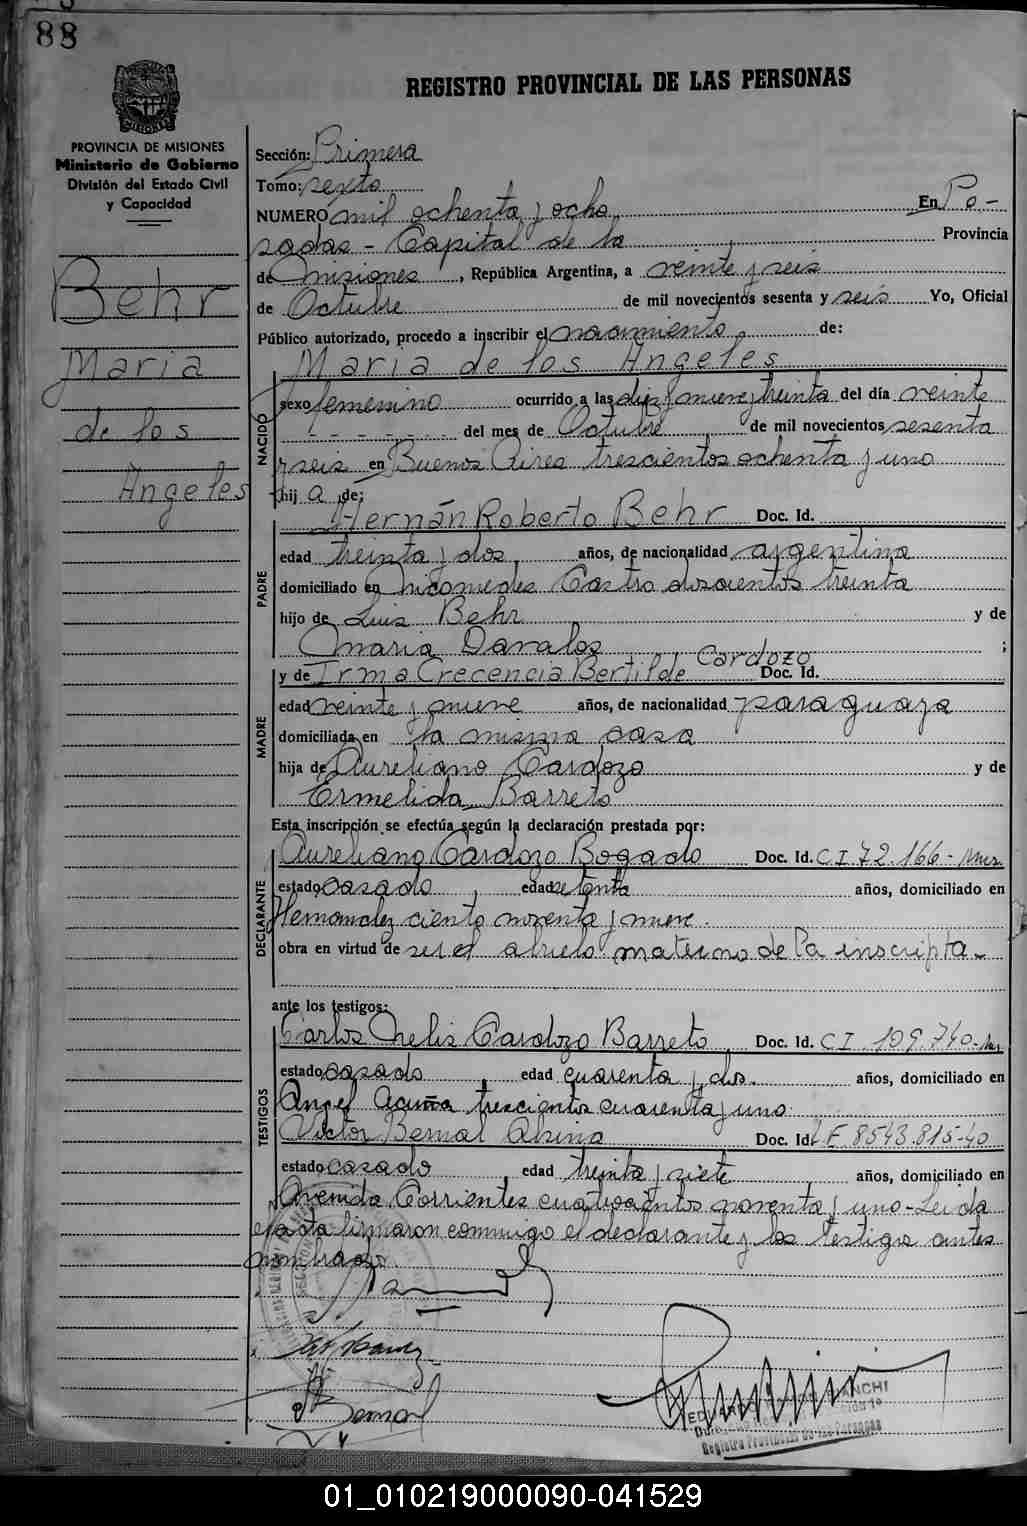 88
REGISTRO PROVINCIAL DE LAS PERSONAS
MISIONES
PROVINCIA DE MISIONES
Ministerio de Gobierno
División del Estado Civil
y Capacidad
Behr
Maria
de los
Angeles
Sección: Primera
Tomo: sexto
NUMERO mil ochenta y ocho En Po-
sadas - Capital de la Provincia
de Misiones, República Argentina, a veinte y seis
de Octubre de mil novecientos sesenta y seis Yo, Oficial
Público autorizado, procedo a inscribir el nacimiento de:
Maria de los Angeles
NACIDO
sexo femenino ocurrido a las diez y nueve y treinta del día veinte
del mes de Octubre de mil novecientos sesenta
y seis en Buenos Aires trescientos ochenta y uno
hij a de:
Hernán Roberto Behr Doc. Id.
PADRE
edad treinta y dos años, de nacionalidad argentina
domiciliado en Nicomedes Castro doscientos treinta
hijo de Luis Behr y de
Maria Davalos ;
y de Irma Crecencia Bertilde Cardozo Doc. Id.
MADRE
edad veinte y nueve años, de nacionalidad paraguaya
domiciliada en la misma casa
hija de Aureliano Cardozo y de
Ermelida Barreto
Esta inscripción se efectúa según la declaración prestada por:
Aureliano Cardozo Bogado Doc. Id. C I. 72.166 - Mnes.
DECLARANTE
estado casado edad setenta años, domiciliado en
Hernandez ciento noventa y nueve.
obra en virtud de ser el abuelo materno de la inscripta.-
ante los testigos:
Carlos Nelis Cardozo Barreto Doc. Id. C I. 109.740-
TESTIGOS
estado casado edad cuarenta y dos. años, domiciliado en
Angel Acuña trescientos cuarenta y uno
Victor Bernal Doc. Id. L E 8543.815-40
estado casado edad treinta y siete años, domiciliado en
Avenida Corrientes cuatrocientos noventa y uno - Leida
el acta firmaron conmigo el declarante y los testigos antes
nombrados.
Bernal
Registro Provincial de las Personas
01_010219000090-041529